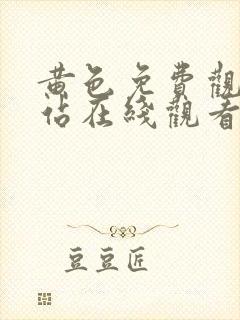 黄色免費觀
佔在綫觀看
豆豆匠